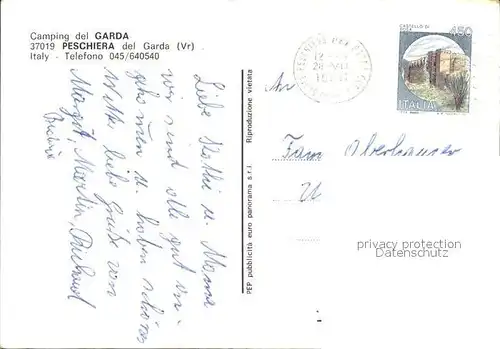 Camping del GARDA
37019 PESCHIERA del Garda (Vr)
Italy - Telefono 045/640540
Liebe Kathi u. Mama
wir sind alle gut an-
gekommen u. haben schönes
Wetter liebe Grüße von
Margit, Martin,
PEP pubblicità euro panorama s.r.l. Riproduzione vietata
CASTELLO DI
450
ITALIA
An
Fam Oberhauser
privacy protection
Datenschutz